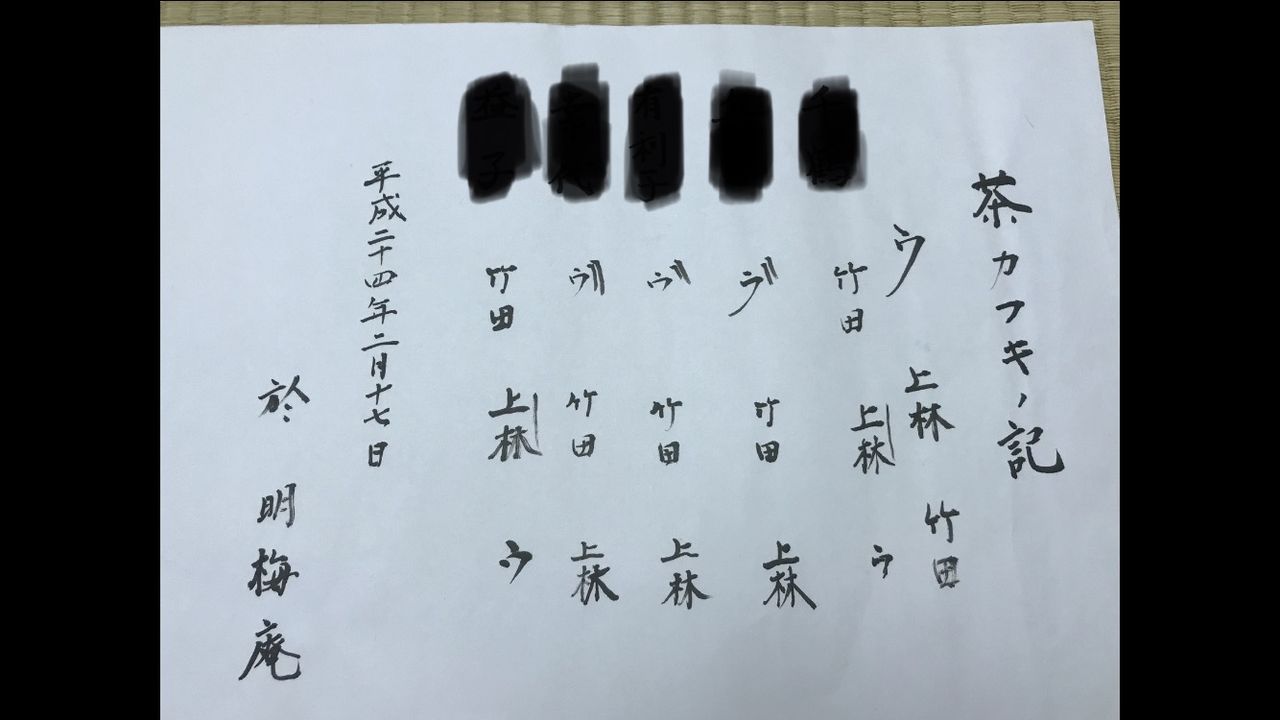 茶カフキノ記
ウ 上林 竹田
竹田 上林 ウ
ウ 竹田 上林
ウ 竹田 上林
ウ 竹田 上林
竹田 上林 ウ
平成二十四年二月十七日
於 明梅庵